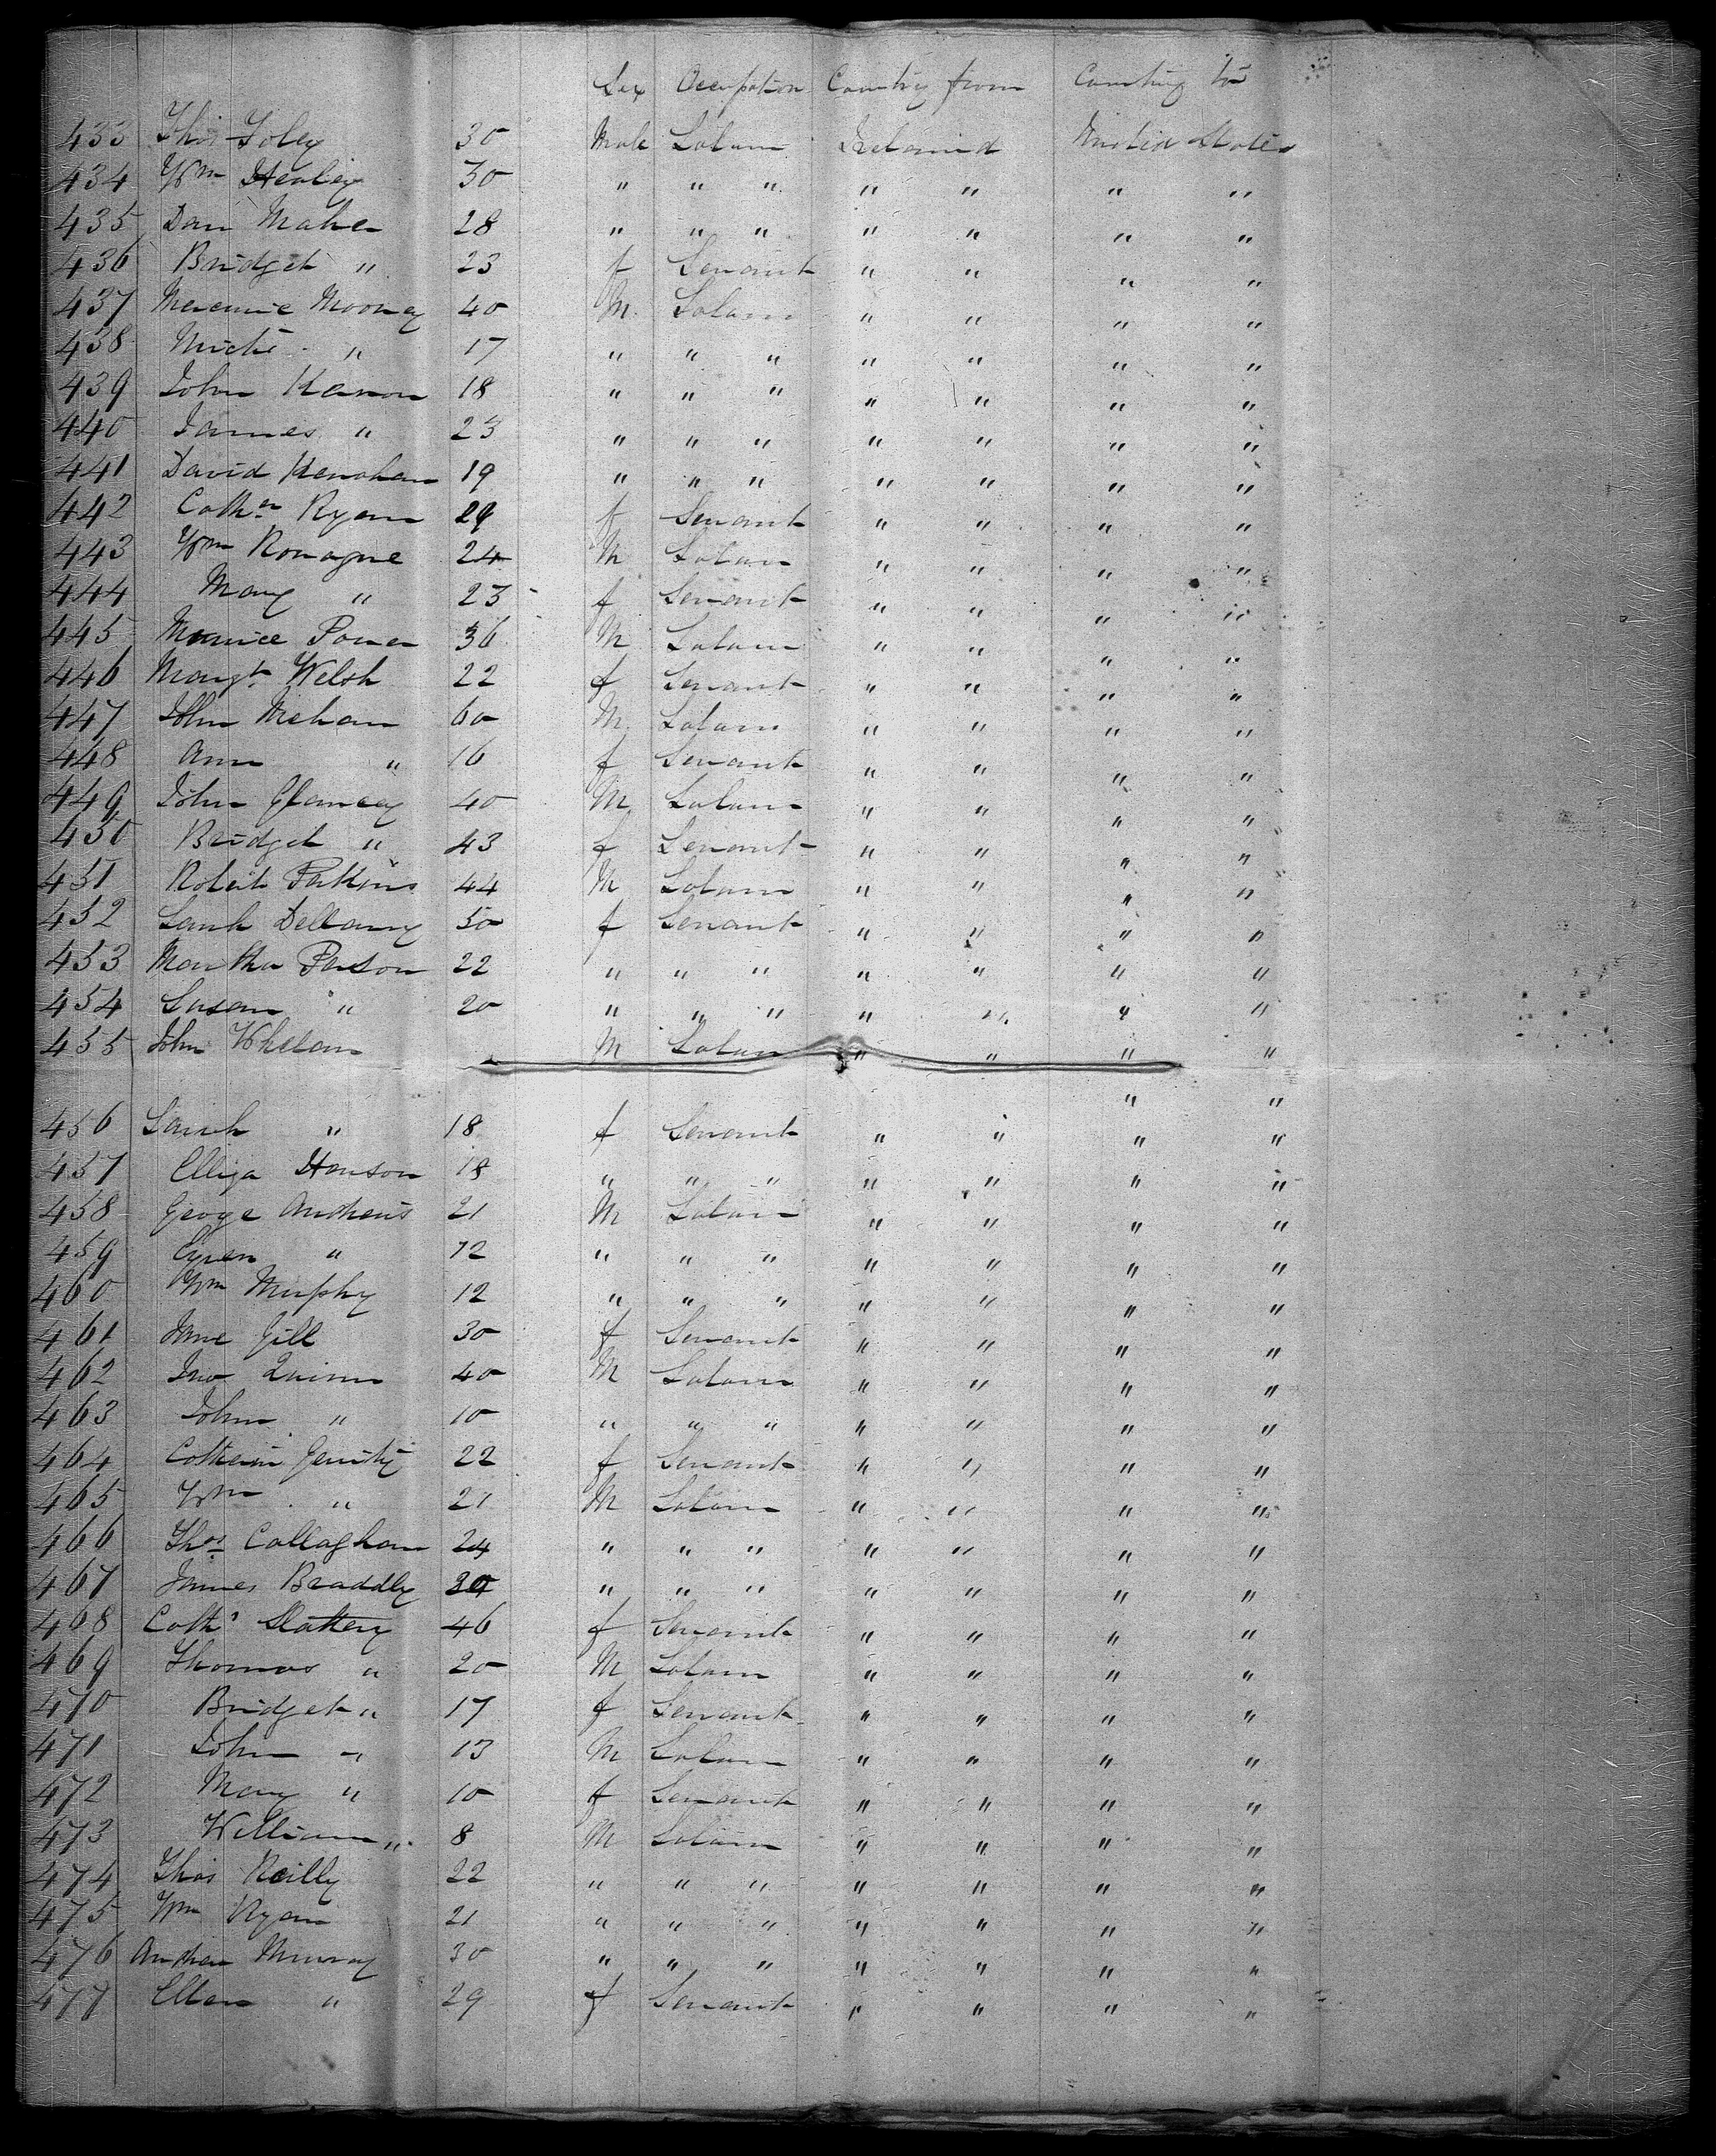 Sex Occupation Country from Country to
433 Thos Foley 30 Male Labour Ireland United States
434 Wm Healey 30 " " " " " " "
435 Dan Maher 28 " " " " " " "
436 Bridget " 23 f Servant " " " "
437 Mooney 40 M Labour " " " "
438 Michl " 17 " " " " " " "
439 John Hanon 18 " " " " " " "
440 James " 23 " " " " " " "
441 David Henahan 19 " " " " " " "
442 Cathn Ryan 29 f Servant " " " "
443 Wm Ronayne 24 M Labour " " " "
444 Mary " 23 f Servant " " " "
445 Maurice Power 36 M Labour " " " "
446 Margt Welsh 22 f Servant " " " "
447 John 60 M Labour " " " "
448 Ann " 16 f Servant " " " "
449 John Glancey 40 M Labour " " " "
450 Bridget " 43 f Servant " " " "
451 Robert Perkins 44 M Labour " " " "
452 Sarah Dellany 50 f Servant " " " "
453 Martha Parson 22 " " " " " " "
454 Susan " 20 " " " " " " "
455 John Whelan M Labour " " " "
" "
456 Sarah " 18 f Servant " " " "
457 Elliza Hanson 18 " " " " " " "
458 George Andrews 21 M Labour " " " "
459 " 12 " " " " " " "
460 Wm Murphy 12 " " " " " " "
461 Jane Gill 30 f Servant " " " "
462 Jno Quinn 40 M Labour " " " "
463 John " 10 " " " " " " "
464 Gerrity 22 f Servant " " " "
465 Wm " 21 M Labour " " " "
466 Thos Callaghan 24 " " " " " " "
467 James Braddly " " " " " " "
468 Cath' Slattery 46 f Servant " " " "
469 Thomas " 20 M Labour " " " "
470 Bridget " 17 f Servant " " " "
471 John " 13 M Labour " " " "
472 Mary " 10 f Servant " " " "
473 William " 8 M Labour " " " "
474 Thos Reilly 22 " " " " " " "
475 Wm Ryan 21 " " " " " " "
476 Andrew Murray 30 " " " " " " "
477 Ellen " 29 f Servant " " " "